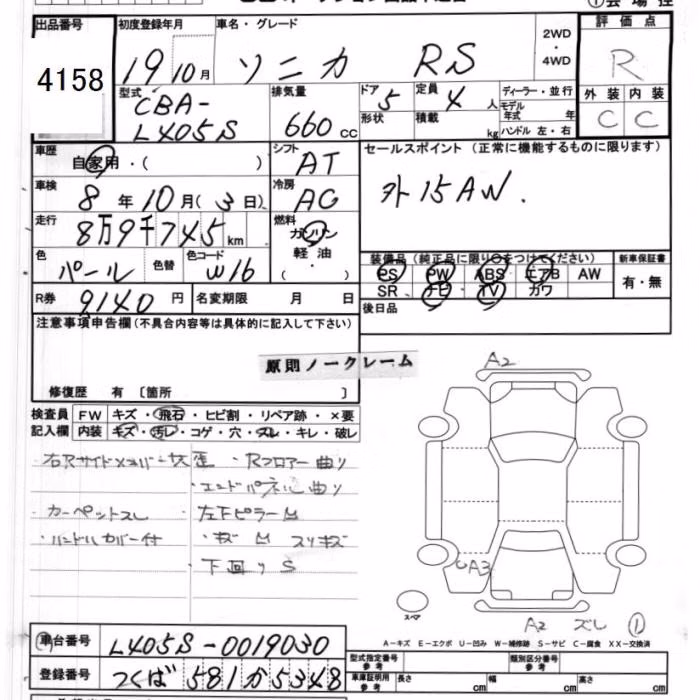 出品番号 初度登録年月 車名・グレード 2WD・4WD 評価点
4158 19 10月 ソニカ RS R
型式 排気量 ドア 定員 ディーラー・並行 外装 内装
CBA-L405S 660cc 5 4人 モデル年式 年 C C
形状 積載 kg ハンドル 左・右
車歴 自家用・( ) シフト AT セールスポイント(正常に機能するものに限ります)
車検 8年10月(3日) 冷房 AC 外15AW.
走行 8万9千745km 燃料 ガソリン 軽油 ( ・ )
色 パール 色替 色コード W16 装備品(純正品に限り○をつけてください) 新車保証書
PS PW ABS エアB AW 有・無
R券 9140円 名変期限 月 日 SR ナビ TV カワ
後日品
注意事項申告欄(不具合内容等は具体的に記入して下さい)
原則ノークレーム
修復歴 有〔箇所 〕
A2
検査員 FW キズ・飛石・ヒビ割・リペア跡・×要
記入欄 内装 キズ・汚し・コゲ・穴・スレ・キレ・破レ
・右Rサイドメンバー ・Rフロアー曲り
・エンドパネル曲り
・カーペットスレ ・左下ピラーU
・ハンドルカバー付 ・キズ U スリキズ
下回りS
A3
スペア
A2 ズレ ①
A-キズ E-エクボ U-凹み W-補修跡 S-サビ C-腐食 XX-交換済
車台番号 L405S-0019030
登録番号 つくば 581か5348
型式指定番号 参考 類別区分番号 参考
車庫証明用 参考 長さ cm 幅 cm 高さ cm